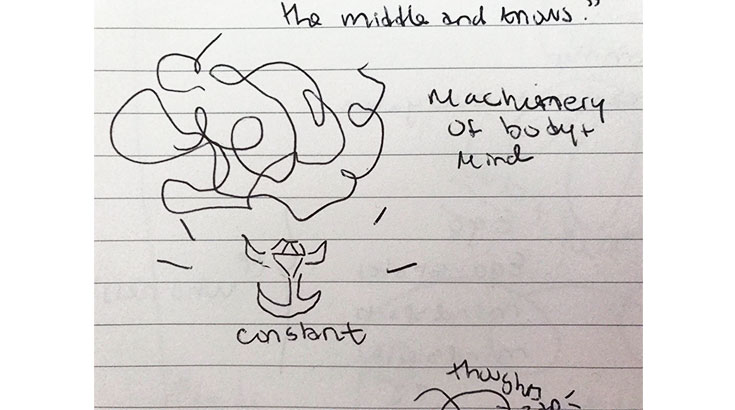 the middle and knows."
Machinery
of body +
Mind
constant
thoughts